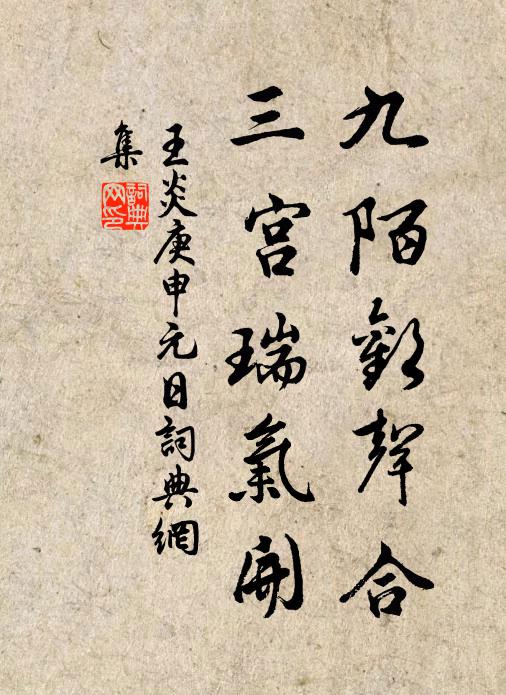 九陌歡聲合
三宮瑞氣開
王炎庚申元日詞典網
集
詞典
网印